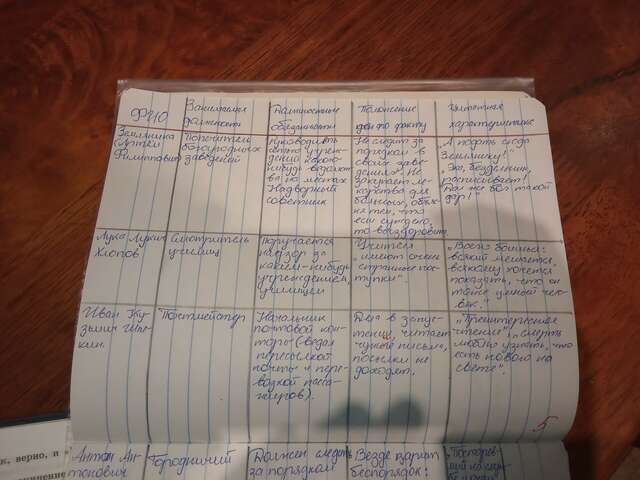 ФИО
Занимаемая
должность
Должностные
обязанности
Положение
дел по факту
Цитатная
характеристика
Земляника
Артемий
Филиппович
Попечитель
богоугодных
заведений
Руководить
какого-
нибудь ведомст-
ва на местах
Надворный
советник
Не следит за
порядком в
своих заве-
дениях. Не
закупает ле-
карства для
больных, объяс-
няет, что
если суждено,
то выздоровит.
„А подать сюда
Землянику!"
„Эка, бездельник,
расписывает!
Дал же бог такой
дар!"
Лука Лукич
Хлопов
Смотритель
училищ
Поручается
надзор за
каким-нибудь
учреждением,
училищем
Учителя
„имеют очень
странные пос-
тупки".
всякий мешается,
всякому хочется
показать, что он
тоже умный чело-
век."
Иван Ку
зьмич Шпе-
кин.
Почтмейстер
Начальник
почтовой кон-
торы (ведал
пересылкой
почты и пере-
возкой пасса-
жиров).
Дела в запус-
тении, читает
чужие письма,
посылки не
доходят.
чтение", „смерть
люблю узнать, что
есть нового на
свете".
5
Антон Ан-
тонович
Городничий
Должен следить
за порядком
Везде царит
беспорядок:
к, верно, и